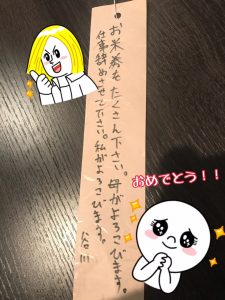 お米券をたくさん下さい。母がよろこびます。
仕事辞めさせて下さい。私がよろこびます。
おめでとう!!